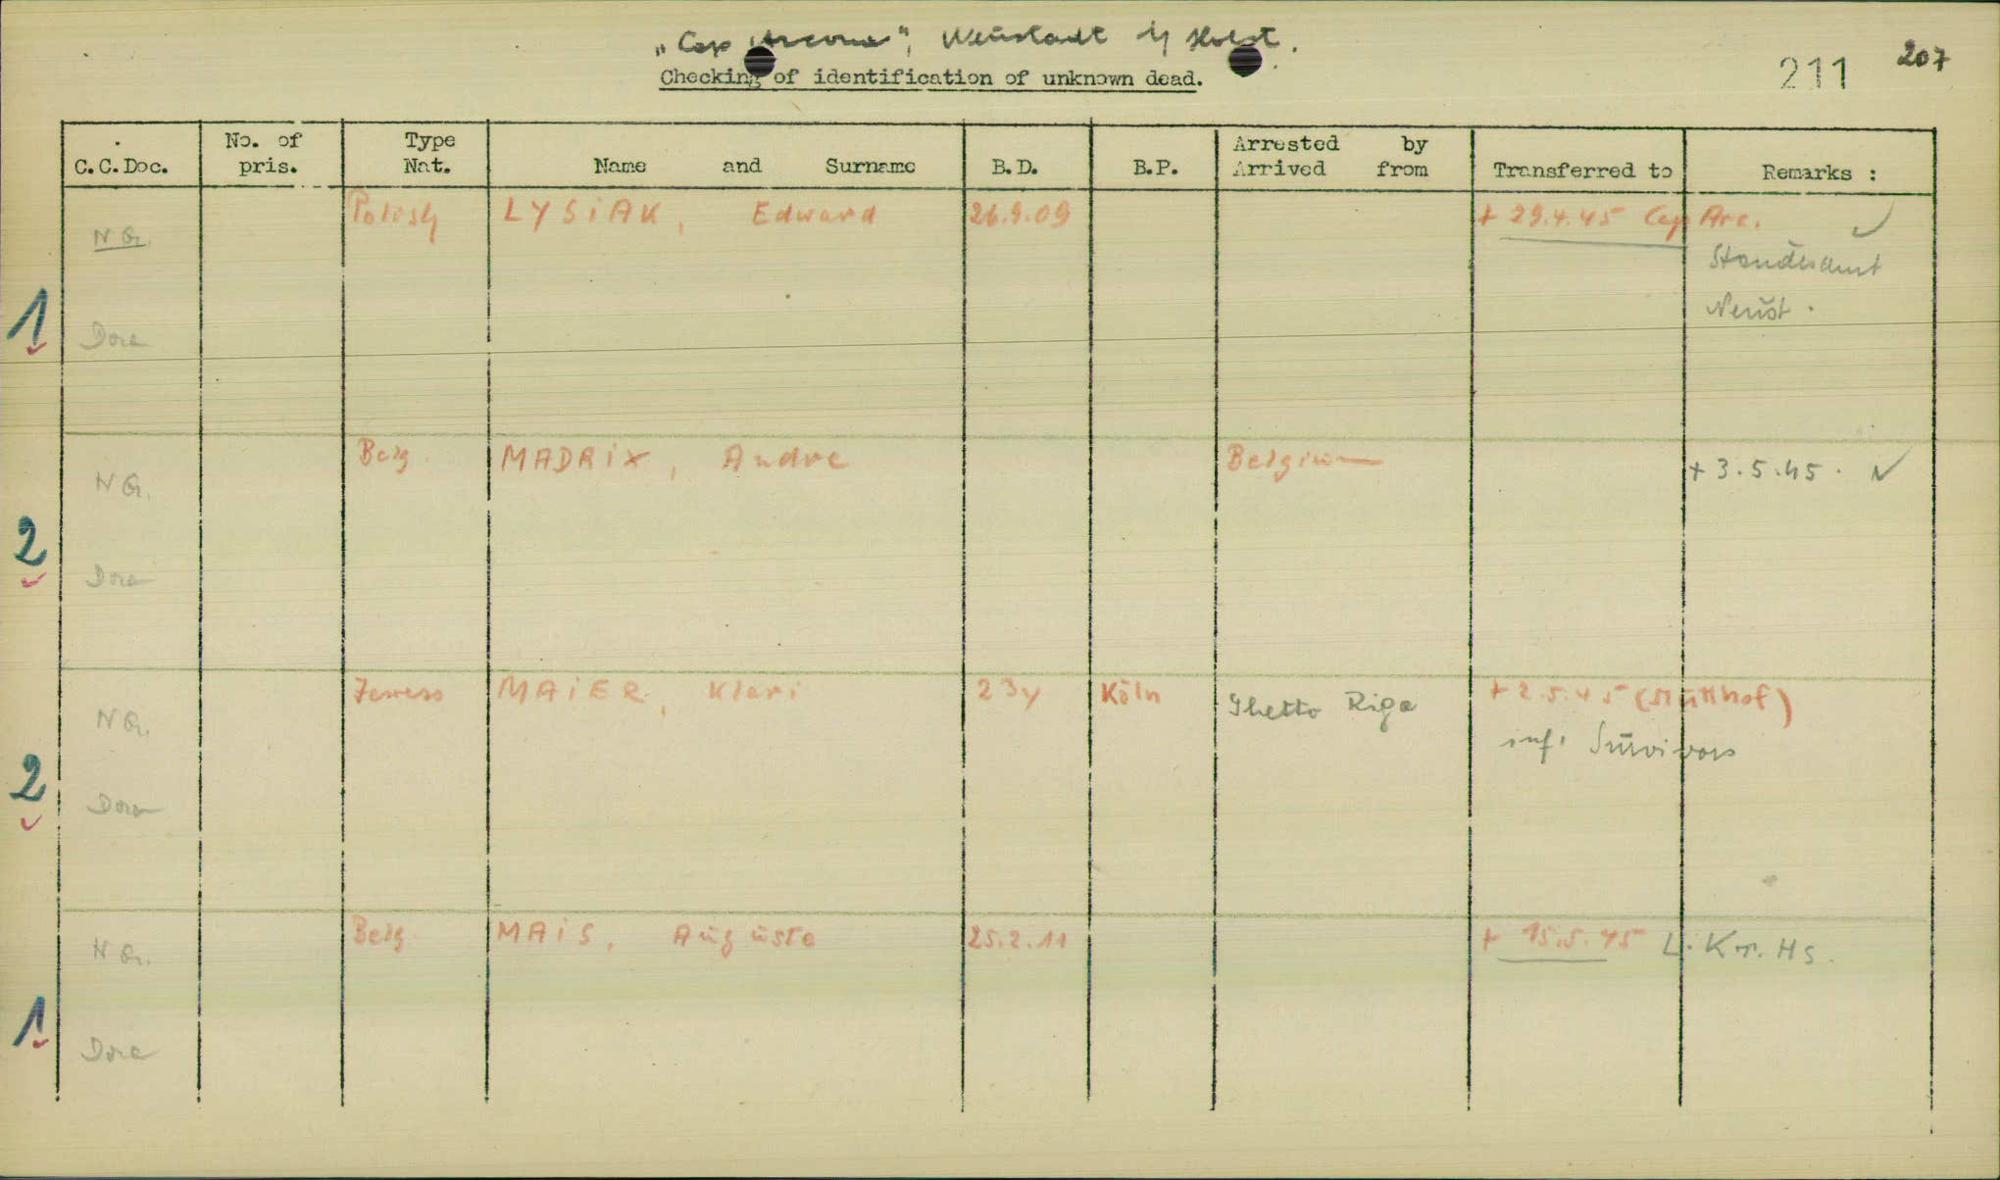 „Cap Arcona", Neustadt i/Holst.
Checking of identification of unknown dead.
211 207
C.C.Doc. No. of pris. Type Nat. Name and Surname B.D. B.P. Arrested by Arrived from Transferred to Remarks :
1 N G. Polish LYSiAK, Edward 26.9.09 + 29.4.45 Cap Arc. ✓
Standesamt
Neust.
Dora
2 N G. Belg. MADRiX, Andre Belgium + 3.5.45. ✓
Dora
2 N G. Jewess MAiER, Klari 23y Köln Ghetto Riga + 2.5.45 (Stutthof)
inf. Survivors
Dora
1 N G. Belg. MAiS, Auguste 25.2.11 + 15.5.45 L. Kr. Hs.
Dora